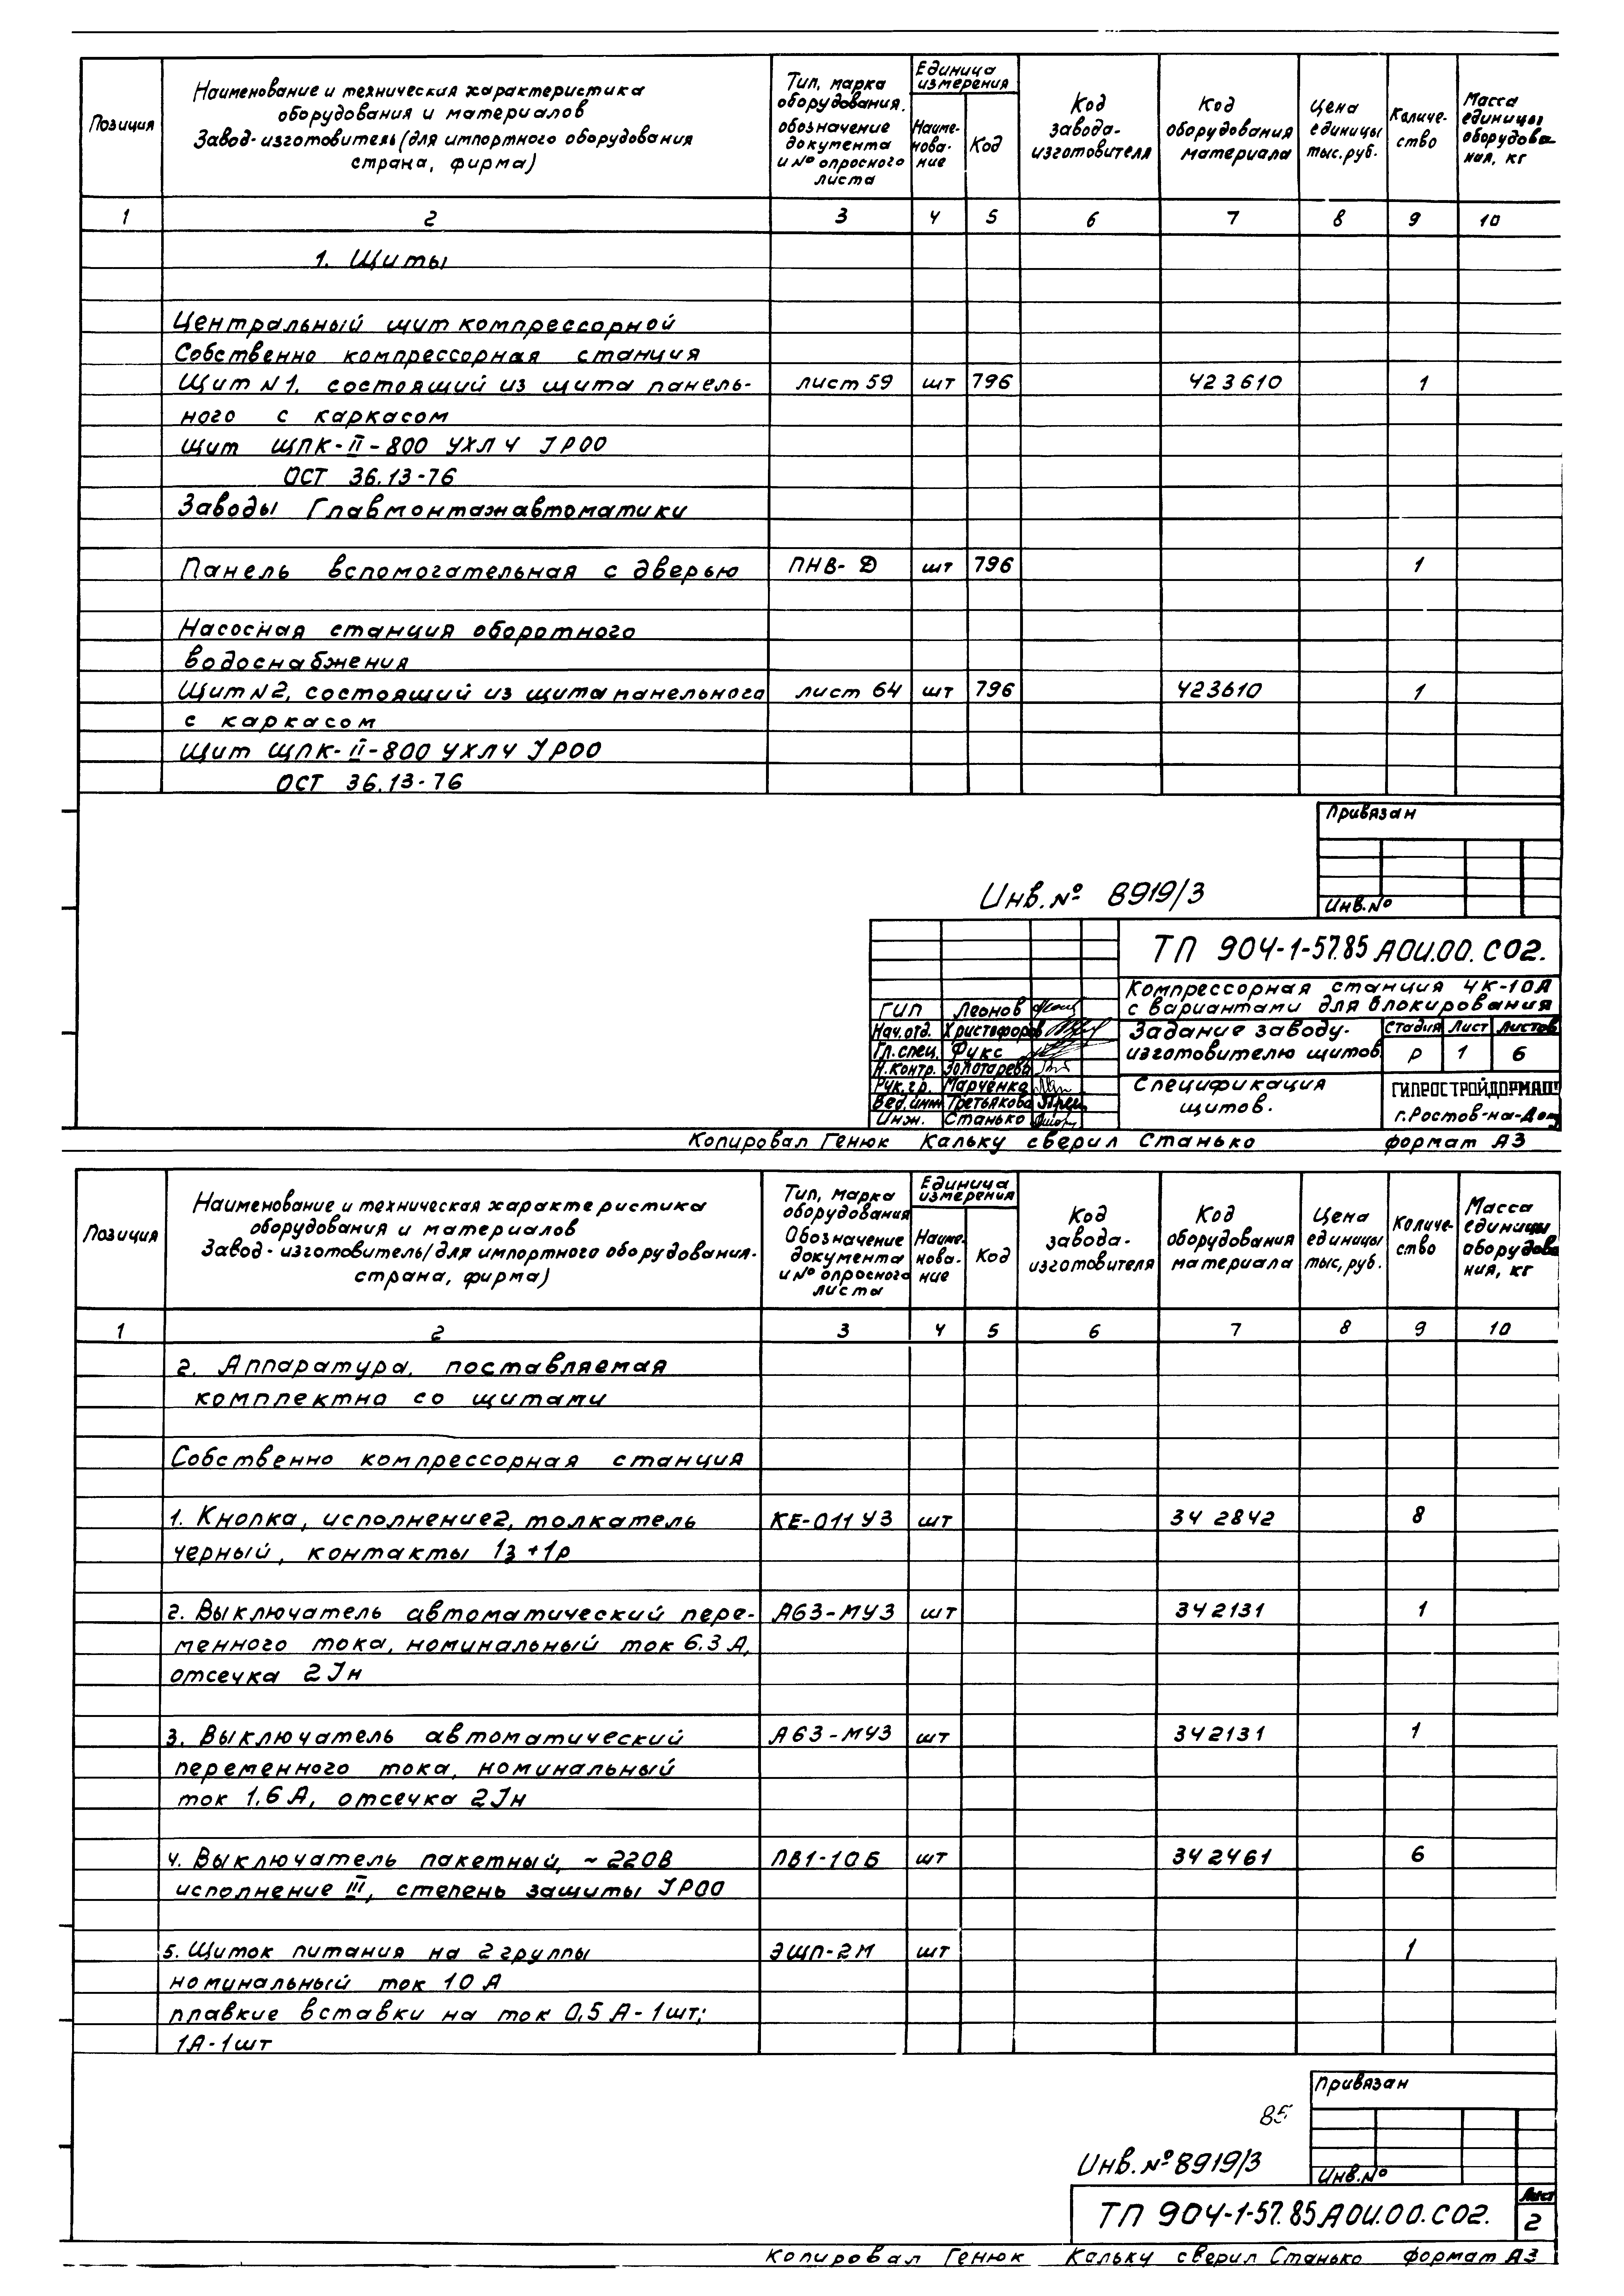 Позиция
Наименование и техническия характеристика
оборудования и материалов
Завод-изготовитель (для импортного оборудования
страна, фирма)
Тип, марка
оборудования.
обозначение
документа
и № опросного
листа
Единица
измерения
Наиме-
нова-
ние
Код
Код
завода-
изготовителя
Код
оборудования
материала
Цена
единицы
тыс.руб.
Количе-
ство
Масса
единицы
оборудова-
ния, кг
1 2 3 4 5 6 7 8 9 10
1. Щиты
Центральный щит компрессорной
Собственно компрессорная станция
Щит N1, состоящий из щита панель- лист 59 шт 796 423610 1
ного с каркасом
Щит ЩПК-II-800 УХЛ4 IP00
ОСТ 36.13-76
Заводы Главмонтажавтоматики
Панель вспомогательная с дверью ПНВ-Д шт 796 1
Насосная станция оборотного
водоснабжения
Щит N2, состоящий из щита панельного лист 64 шт 796 423610 1
с каркасом
Щит ЩПК-II-800 УХЛ4 IP00
ОСТ 36.13-76
Привязан
Инв.№
Инв.№ 8919/3
ТП 904-1-57.85 АОИ.00.СО2.
Компрессорная станция 4К-10А
с вариантами для блокирования
ГИП Леонов
Нач.отд. Христофоров
Гл.спец. Фукс
Н.контр. Золотарева
Рук.гр. Марченко
Вед.инж Третьякова
Инж. Станько
Задание заводу-
изготовителю щитов
Стадия Лист Листов
Р 1 6
Спецификация
щитов.
ГИПРОСТРОЙДОРМАШ
г.Ростов-на-Дону
Копировал Генюк Кальку сверил Станько формат А3
Позиция
Наименование и техническая характеристика
оборудования и материалов
Завод-изготовитель/для импортного оборудования-
страна, фирма)
Тип, марка
оборудования
Обозначение
документа
и № опросного
листа
Единица
измерения
Наиме-
нова-
ние
Код
Код
завода-
изготовителя
Код
оборудования
материала
Цена
единицы
тыс, руб.
Количе-
ство
Масса
единицы
оборудова
ния, кг
1 2 3 4 5 6 7 8 9 10
2. Аппаратура, поставляемая
комплектно со щитами
Собственно компрессорная станция
1. Кнопка, исполнение2, толкатель КЕ-011У3 шт 34 2842 8
черный, контакты 1з+1р
2. Выключатель автоматический пере- А63-МУ3 шт 342131 1
менного тока, номинальный ток 6.3 А,
отсечка 2Iн
3. Выключатель автоматический А63-МУ3 шт 342131 1
переменного тока, номинальный
ток 1.6 А, отсечка 2Iн
4. Выключатель пакетный, ~220В ПВ1-10Б шт 342461 6
исполнение III, степень защиты IP00
5. Щиток питания на 2 группы ЭЩП-2М шт 1
номинальный ток 10 А
плавкие вставки на ток 0,5 А-1шт;
1А-1шт
Привязан
85
Инв.№
Инв.№8919/3
ТП 904-1-57.85 АОИ.00.СО2.
Лист
2
Копировал Генюк Кальку сверил Станько формат А3